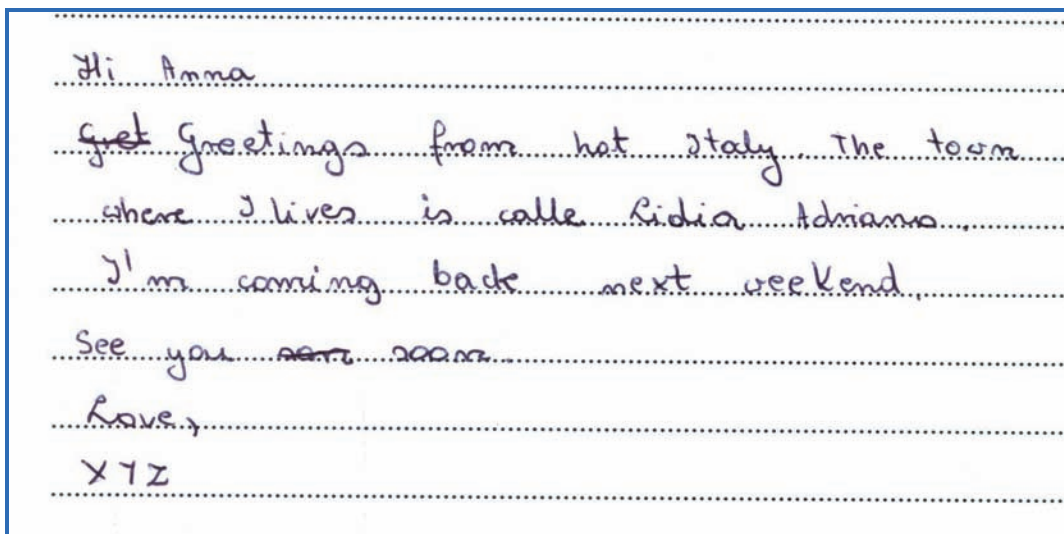 Hi Anna
Gret Greetings from hot Italy. The town
where I lives is calle Lidia Adriano.
I'm coming back next weekend.
See you soon
Love,
XYZ